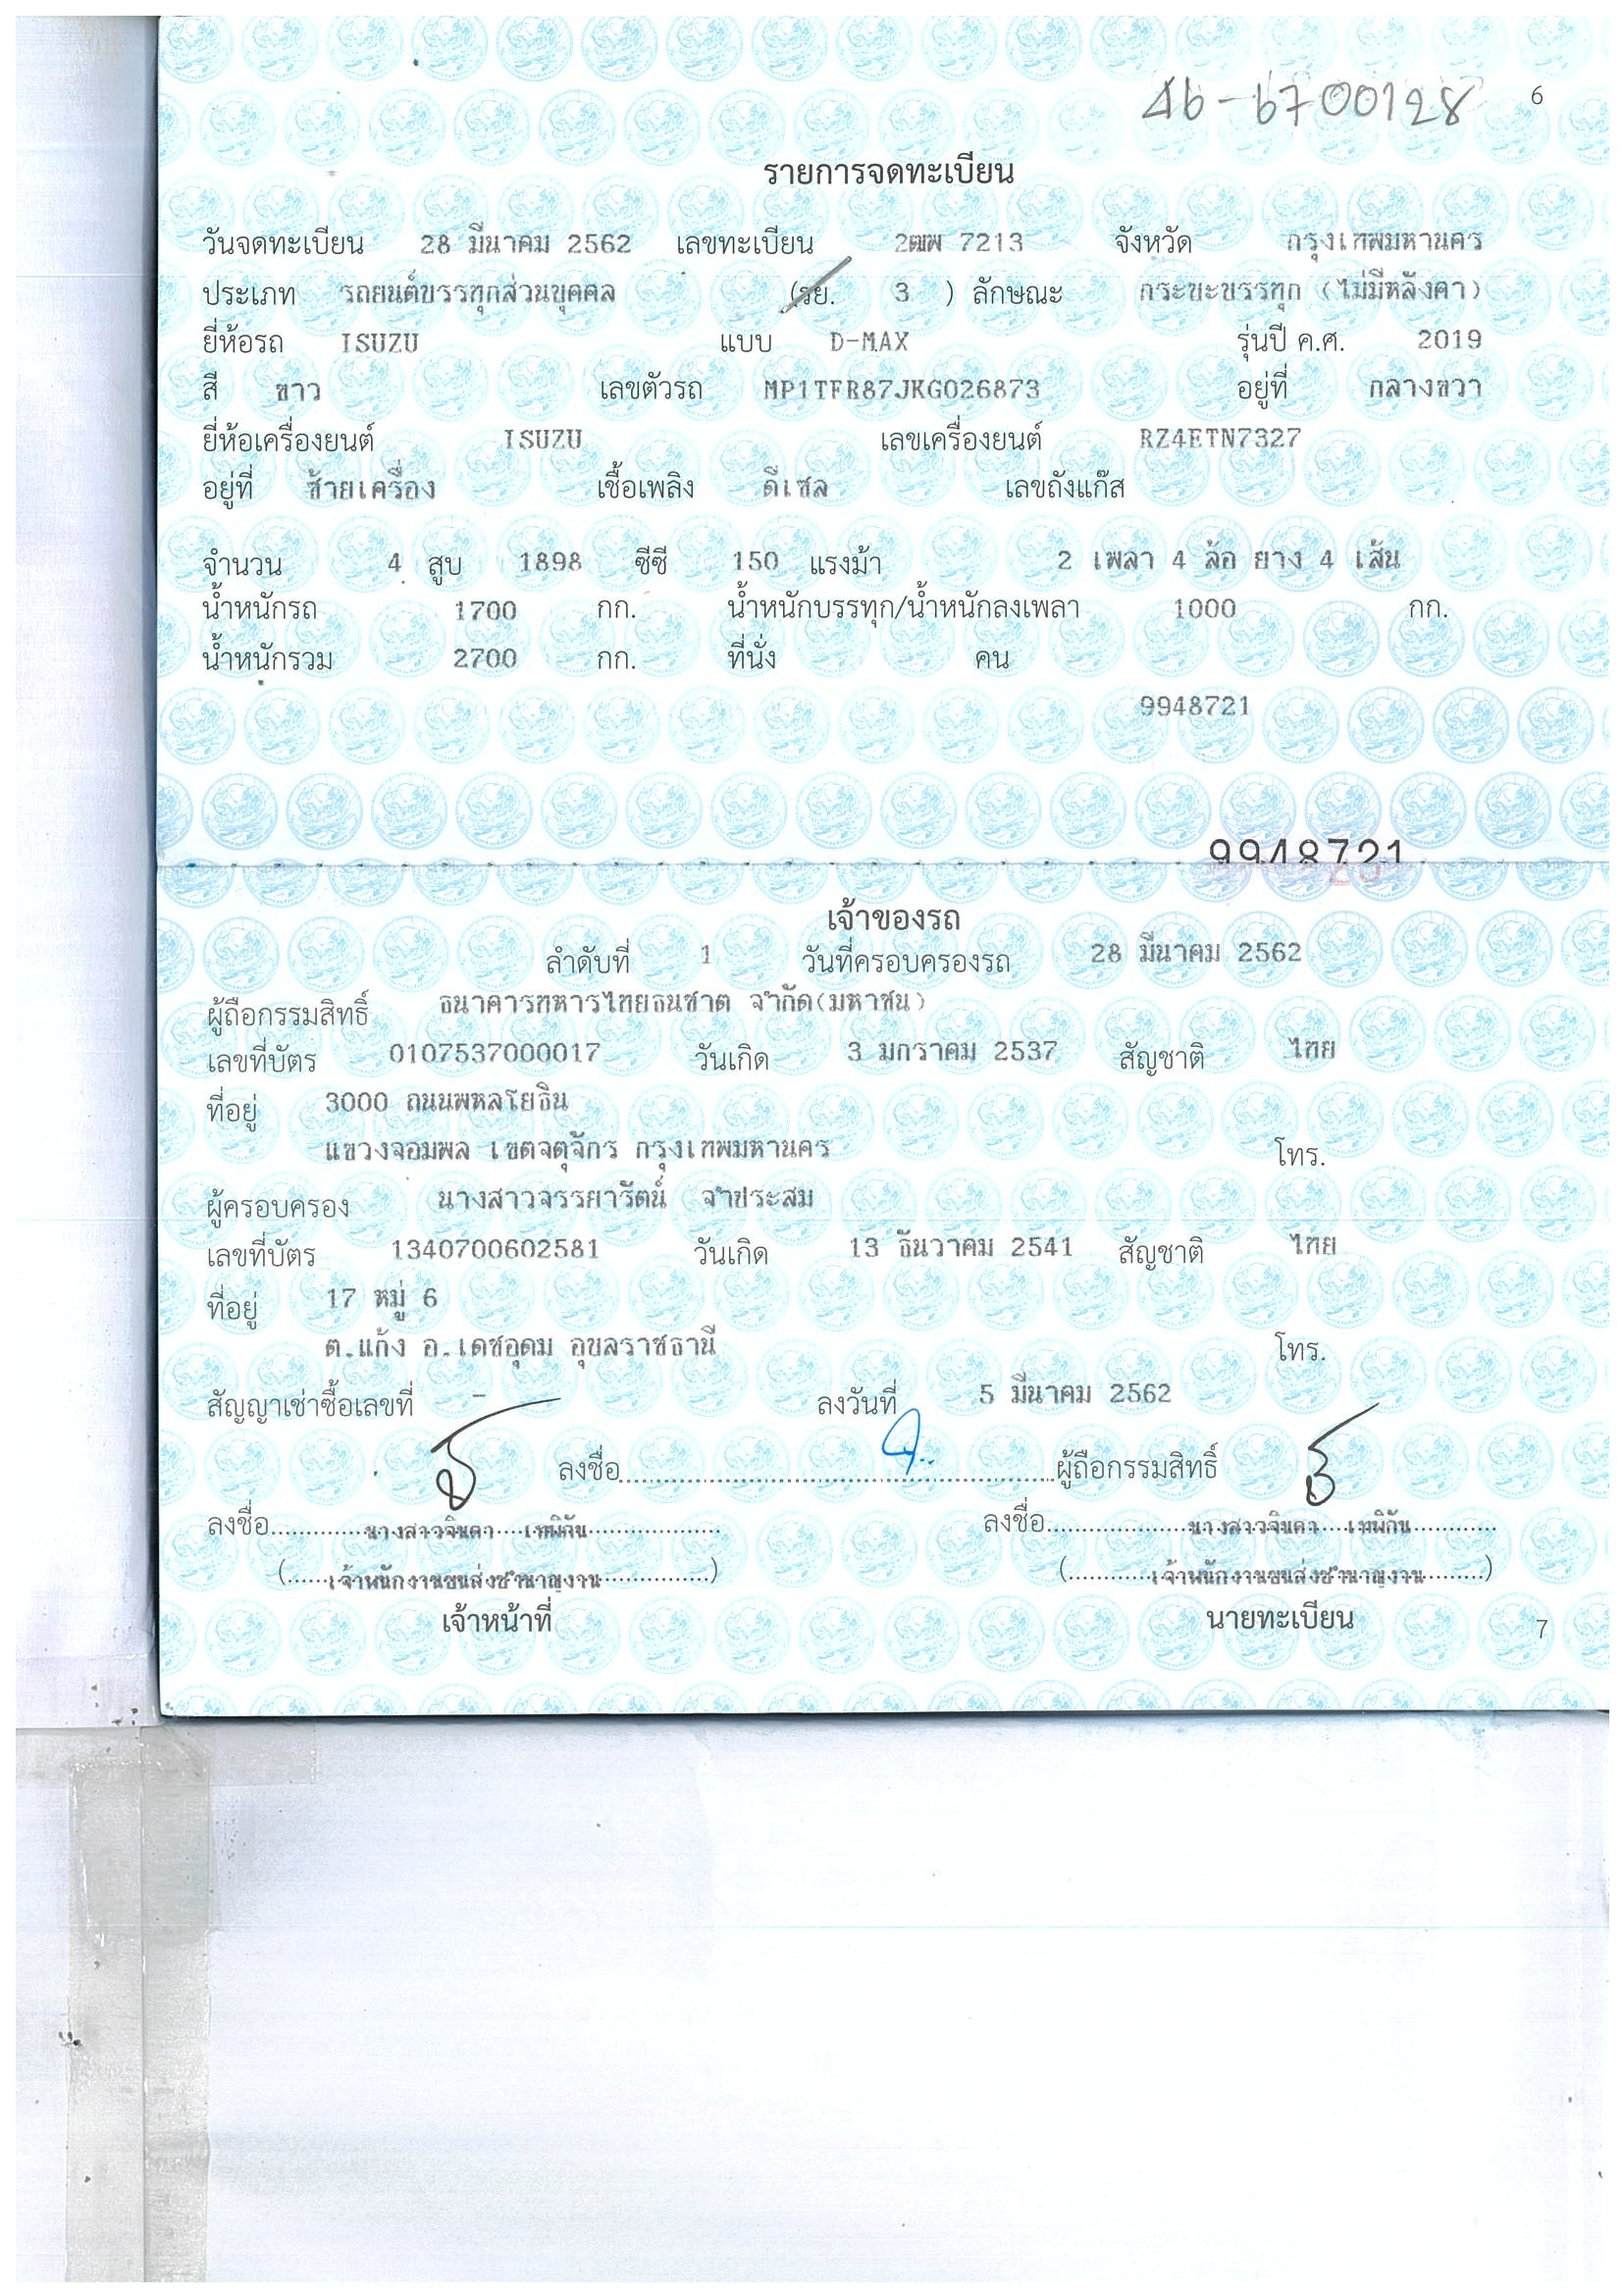 46-6700128
6
รายการจดทะเบียน
วันจดทะเบียน 28 มีนาคม 2562 เลขทะเบียน 2ฒพ 7213 จังหวัด กรุงเทพมหานคร
ประเภท รถยนต์บรรทุกส่วนบุคคล (รย. 3 ) ลักษณะ กระบะบรรทุก (ไม่มีหลังคา)
ยี่ห้อรถ ISUZU แบบ D-MAX รุ่นปี ค.ศ. 2019
สี ขาว เลขตัวรถ MP1TFR87JKG026873 อยู่ที่ กลางขวา
ยี่ห้อเครื่องยนต์ ISUZU เลขเครื่องยนต์ RZ4ETN7327
อยู่ที่ ซ้ายเครื่อง เชื้อเพลิง ดีเซล เลขถังแก๊ส
จำนวน 4 สูบ 1898 ซีซี 150 แรงม้า 2 เพลา 4 ล้อ ยาง 4 เส้น
น้ำหนักรถ 1700 กก. น้ำหนักบรรทุก/น้ำหนักลงเพลา 1000 กก.
น้ำหนักรวม 2700 กก. ที่นั่ง คน
9948721
9948721
เจ้าของรถ
ลำดับที่ 1 วันที่ครอบครองรถ 28 มีนาคม 2562
ผู้ถือกรรมสิทธิ์ ธนาคารทหารไทยธนชาต จำกัด(มหาชน)
เลขที่บัตร 0107537000017 วันเกิด 3 มกราคม 2537 สัญชาติ ไทย
ที่อยู่ 3000 ถนนพหลโยธิน
แขวงจอมพล เขตจตุจักร กรุงเทพมหานคร โทร.
ผู้ครอบครอง นางสาวจรรยารัตน์ จำประสม
เลขที่บัตร 1340700602581 วันเกิด 13 ธันวาคม 2541 สัญชาติ ไทย
ที่อยู่ 17 หมู่ 6
ต.แก้ง อ.เดชอุดม อุบลราชธานี โทร.
สัญญาเช่าซื้อเลขที่ - ลงวันที่ 5 มีนาคม 2562
ลงชื่อ ผู้ถือกรรมสิทธิ์
ลงชื่อ นางสาวจินดา เทพิกัน ลงชื่อ นางสาวจินดา เทพิกัน
(เจ้าหนักงานขนส่งชำนาญงาน) (เจ้าหนักงานขนส่งชำนาญงาน)
เจ้าหน้าที่ นายทะเบียน
7